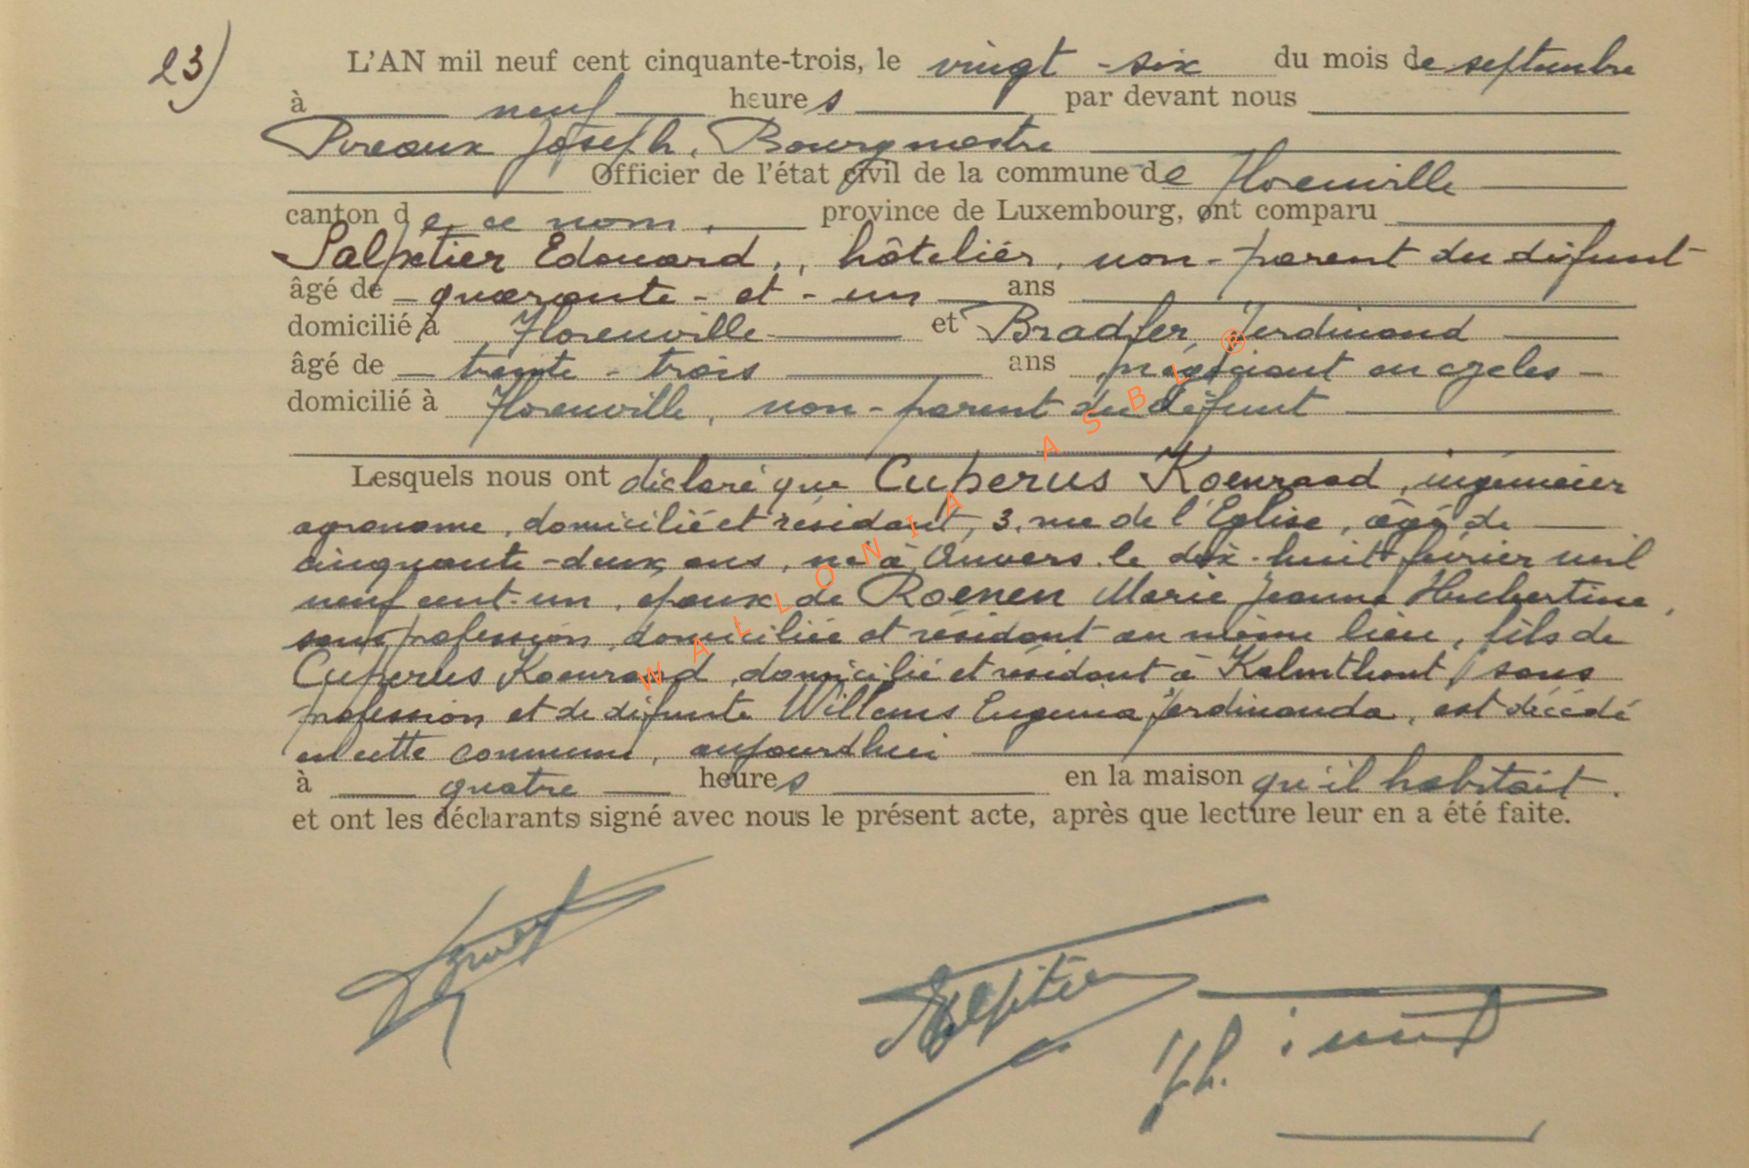 23)
L'AN mil neuf cent cinquante-trois, le vingt-six du mois de septembre
à neuf heures par devant nous
Pireaux Joseph, Bourgmestre
Officier de l'état civil de la commune de Florenville
canton de ce nom, province de Luxembourg, ont comparu
Salpetier Edouard, hôtelier, non-parent du défunt
âgé de quarante-et-un ans
domicilié à Florenville et Bradfer, Ferdinand
âgé de trente-trois ans négociant en cycles
domicilié à Florenville, non-parent du défunt
Lesquels nous ont déclaré que Cuperus Koenraad, ingénieur
agronome, domicilié et résidant, 3, rue de l'Eglise, âgé de
cinquante-deux ans, né à Anvers le dix-huit février mil
neuf cent-un, époux de Roenen Marie Jeanne Hubertine,
sans profession, domiciliée et résidant au même lieu, fils de
Cuperus Koenraad, domicilié et résidant à Kalmthout, sans
profession, et de défunte Willems Eugenia Ferdinanda, est décédé
en cette commune, aujourd'hui
à quatre heures en la maison qu'il habitait.
et ont les déclarants signé avec nous le présent acte, après que lecture leur en a été faite.
Salpetier
WALLONIA ASBL ®